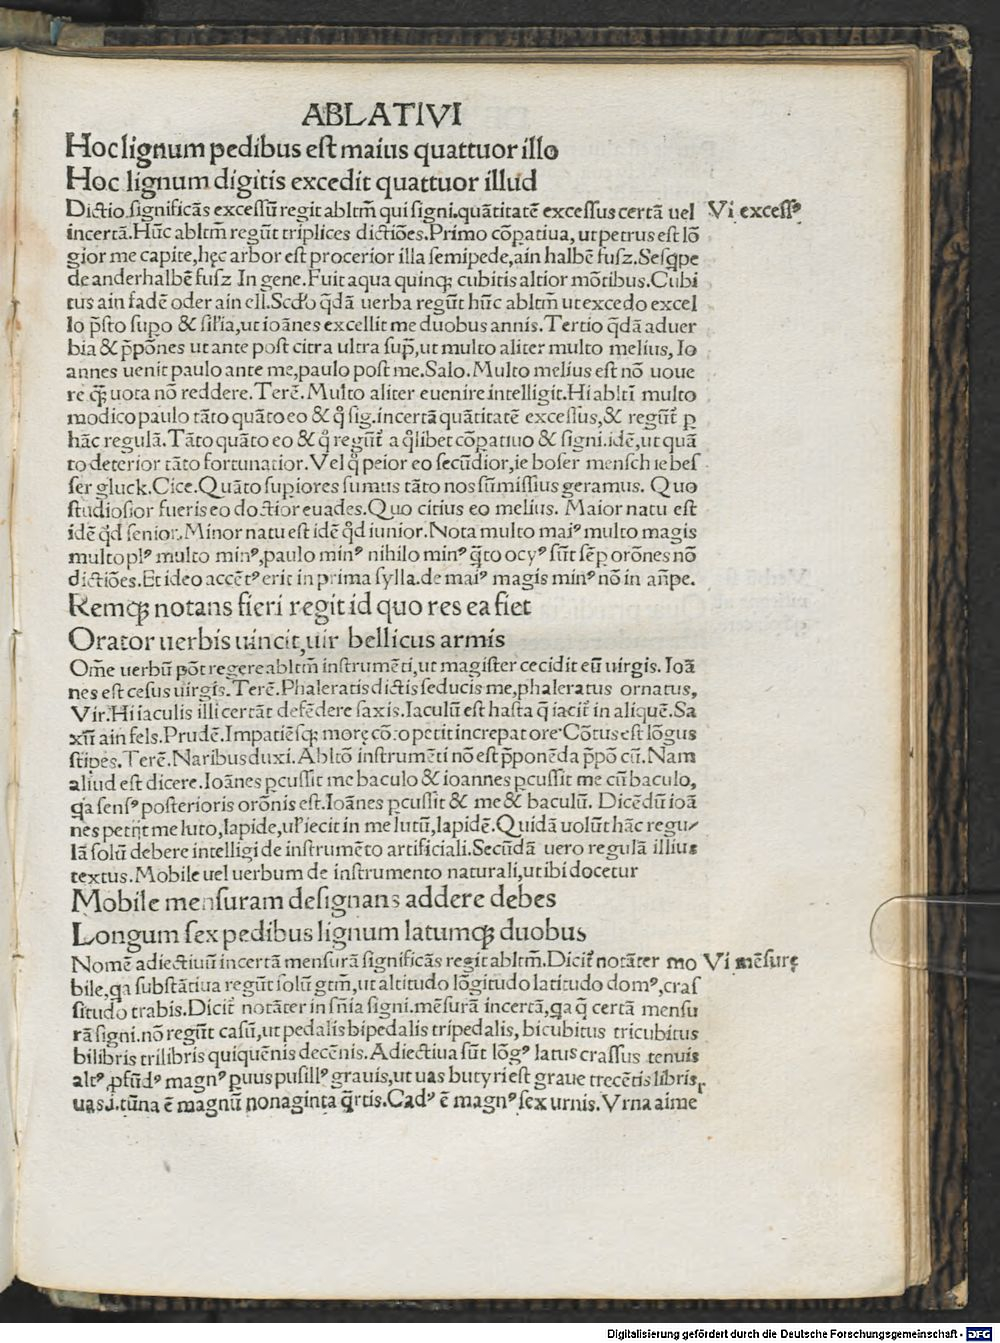 ABLATIVI
Hoc lignum pedibus est maius quattuor illo
Hoc lignum digitis excedit quattuor illud
Dictio significās excessū regit abltm̄ qui signi.quātitatē excessus certā uel Vi excessꝰ
incertā.Hūc abltm̄ regūt triplices dictiōes.Primo cōpatiua, ut petrus est lō
gior me capite,hęc arbor est procerior illa semipede,ain halbē fusz.Sesq̄pe
de anderhalbē fusz In gene.Fuit aqua quinqꝫ cubitis altior mōtibus.Cubi
tus ain fadē oder ain ell.Scd̓o q̄dā uerba regūt hūc abltm̄ ut excedo excel
lo p̄sto supo & sil̓ia,ut ioānes excellit me duobus annis.Tertio q̄dā aduer
bia & p̄pōnes ut ante post citra ultra sup̄,ut multo aliter multo melius, Io
annes uenit paulo ante me,paulo post me.Salo.Multo melius est nō uoue
re qꝫ̄ uota nō reddere.Terē.Multo aliter euenire intelligit.Hi abltī multo
modico paulo tāto quāto eo & q̊ sig.incertā quātitatē excessus,& regūt̄ p
hāc regulā.Tāto quāto eo & q̊ regūt̄ a q̊libet cōpatiuo & signi.idē,ut quā
to deterior tāto fortunatior.Vel q̊ peior eo secūdior,ie boser mensch ie bes
ser gluck.Cice.Quāto supiores sumus tāto nos sūmissius geramus. Quo
studiosior fueris eo doctior euades.Quo citius eo melius. Maior natu est
idē qd̓ senior.Minor natu est idē qd̓ iunior.Nota multo maiꝰ multo magis
multo plꝰ multo minꝰ,paulo minꝰ nihilo minꝰ q̄to ocyꝰ sūt sēp orōnes nō
dictiōes.Et ideo accētꝰ erit in prima sylla.de maiꝰ magis minꝰ nō in añpe.
Remqꝫ notans fieri regit id quo res ea fiet
Orator uerbis uincit,uir bellicus armis
Om̄e uerbū pōt regere abltm̄ instrumēti,ut magister cecidit eū uirgis. Ioā
nes est cesus uirgis.Terē.Phaleratis dictis seducis me,phaleratus ornatus,
Vir.Hi iaculis illi certāt defēdere saxis.Iaculū est hasta q̄ iacit̄ in aliquē.Sa
xū ain fels.Prudē.Impatiēsqꝫ morę cō:o petit increpat ore Cōtus est lōgus
stipes.Terē.Naribus duxi.Abltō instrumēti nō est p̄ponēda p̄pō cū.Nam
aliud est dicere.Ioānes pcussit me baculo & ioannes pcussit me cū baculo,
q̇a sensꝰ posterioris orōnis est.Ioānes pcussit & me & baculū. Dicēdū ioā
nes petijt me luto,lapide,ul̓ iecit in me lutū,lapidē.Quidā uolūt hāc regu⸗
lā solū debere intelligi de instrumēto artificiali.Secūdā uero regulā illius
textus.Mobile uel uerbum de instrumento naturali,ut ibi docetur
Mobile mensuram designans addere debes
Longum sex pedibus lignum latumqꝫ duobus
Nomē adiectiuū incertā mensurā significās regit abltm̄.Dicit̄ notāter mo Vi mēsurę
bile,q̇a substātiua regūt solū gtm̄,ut altitudo lōgitudo latitudo domꝰ,cras
situdo trabis.Dicit̄ notāter in sn̄ia signi.mēsurā incertā,q̇a q̄ certā mensu
rā signi.nō regūt casū,ut pedalis bipedalis tripedalis, bicubitus tricubitus
bilibris trilibris quiquēnis decēnis.Adiectiua sūt lōgꝰ latus crassus tenuis
altꝰ ,pfūdꝰ magnꝰ puus pusillꝰ grauis,ut uas butyri est graue trecētis libris,
uas.i.tūna ē magnū nonaginta q̄rtis.Cadꝰ ē magnꝰ sex urnis.Vrna aime
Digitalisierung gefördert durch die Deutsche Forschungsgemeinschaft - DFG